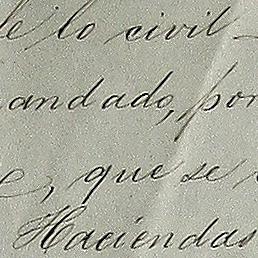 de lo civil
andado, por
e, que se
Haciendas